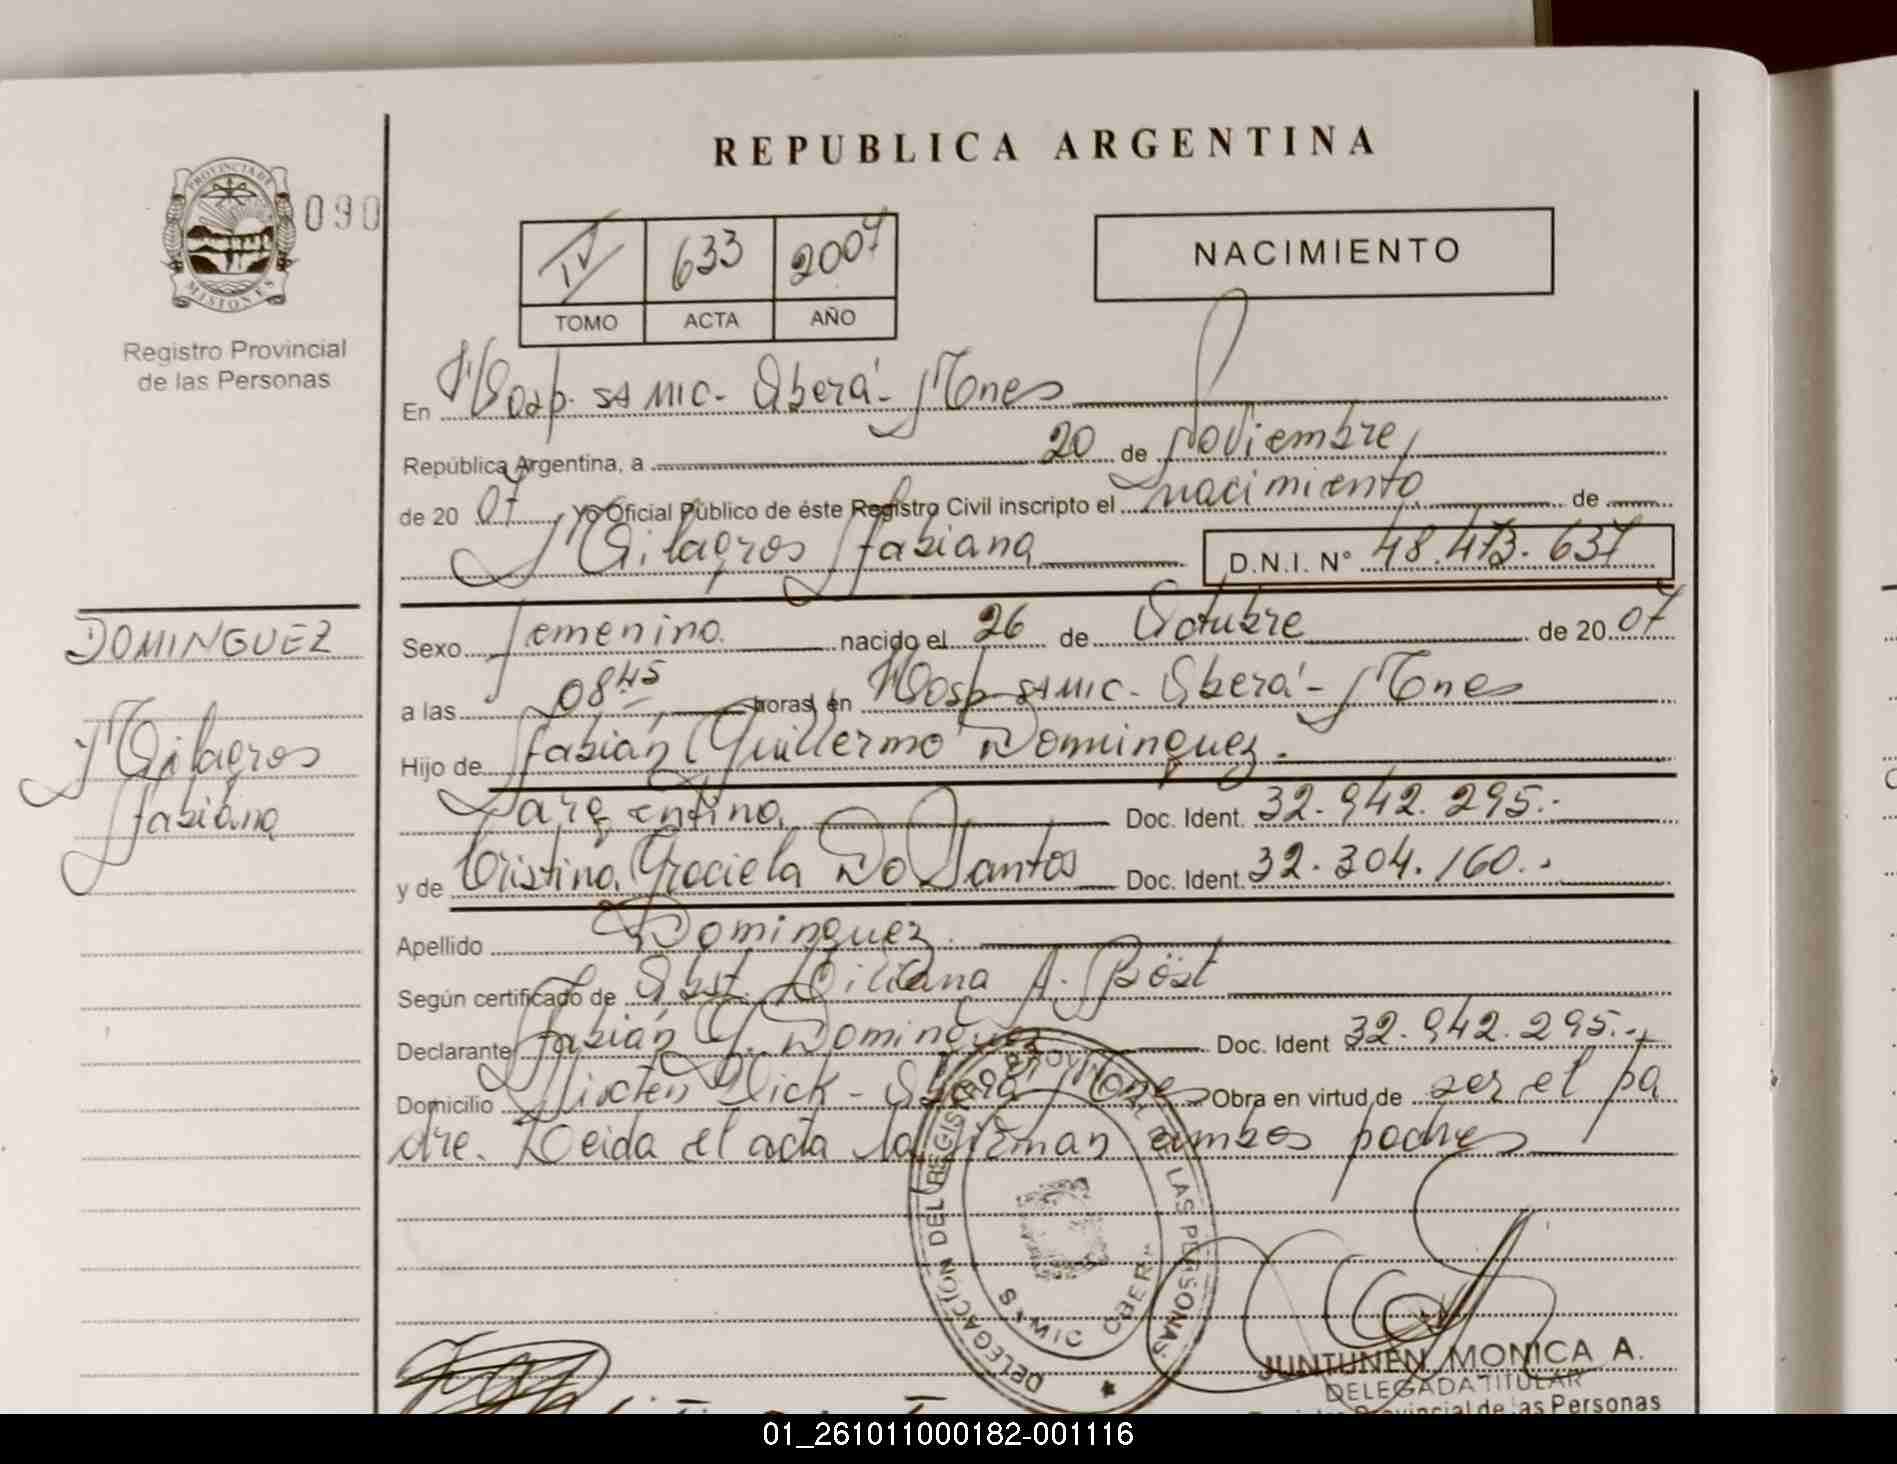 REPUBLICA ARGENTINA
PROVINCIA DE
MISIONES
090
Registro Provincial
de las Personas
IV 633 2007
TOMO ACTA AÑO
NACIMIENTO
En Hosp. SAMIC - Oberá - Mnes
República Argentina, a 20 de Noviembre
de 20 07 Yo Oficial Público de éste Registro Civil inscripto el nacimiento de
Milagros Fabiana D.N.I. N° 48.473.637
DOMINGUEZ
Milagros
Fabiana
Sexo femenino nacido el 26 de Octubre de 20 07
a las 08 45 horas, en Hosp. SAMIC - Oberá - Mnes
Hijo de Fabián Guillermo Dominguez.
argentino, Doc. Ident. 32.942.295.-
y de Cristina Graciela Do Santos Doc. Ident. 32.304.160.-
Apellido Dominguez
Según certificado de Obst. Liliana A. Böst
Declarante Fabián G. Dominguez Doc. Ident 32.942.295.-
Domicilio Oberá Mnes Obra en virtud de ser el pa
dre. Leida el acta la firman ambos padres
DELEGACIÓN DEL REGISTRO PROVINCIAL DE LAS PERSONAS
SAMIC OBERÁ
JUNTUNEN, MONICA A.
DELEGADA TITULAR
Provincial de las Personas
01_261011000182-001116